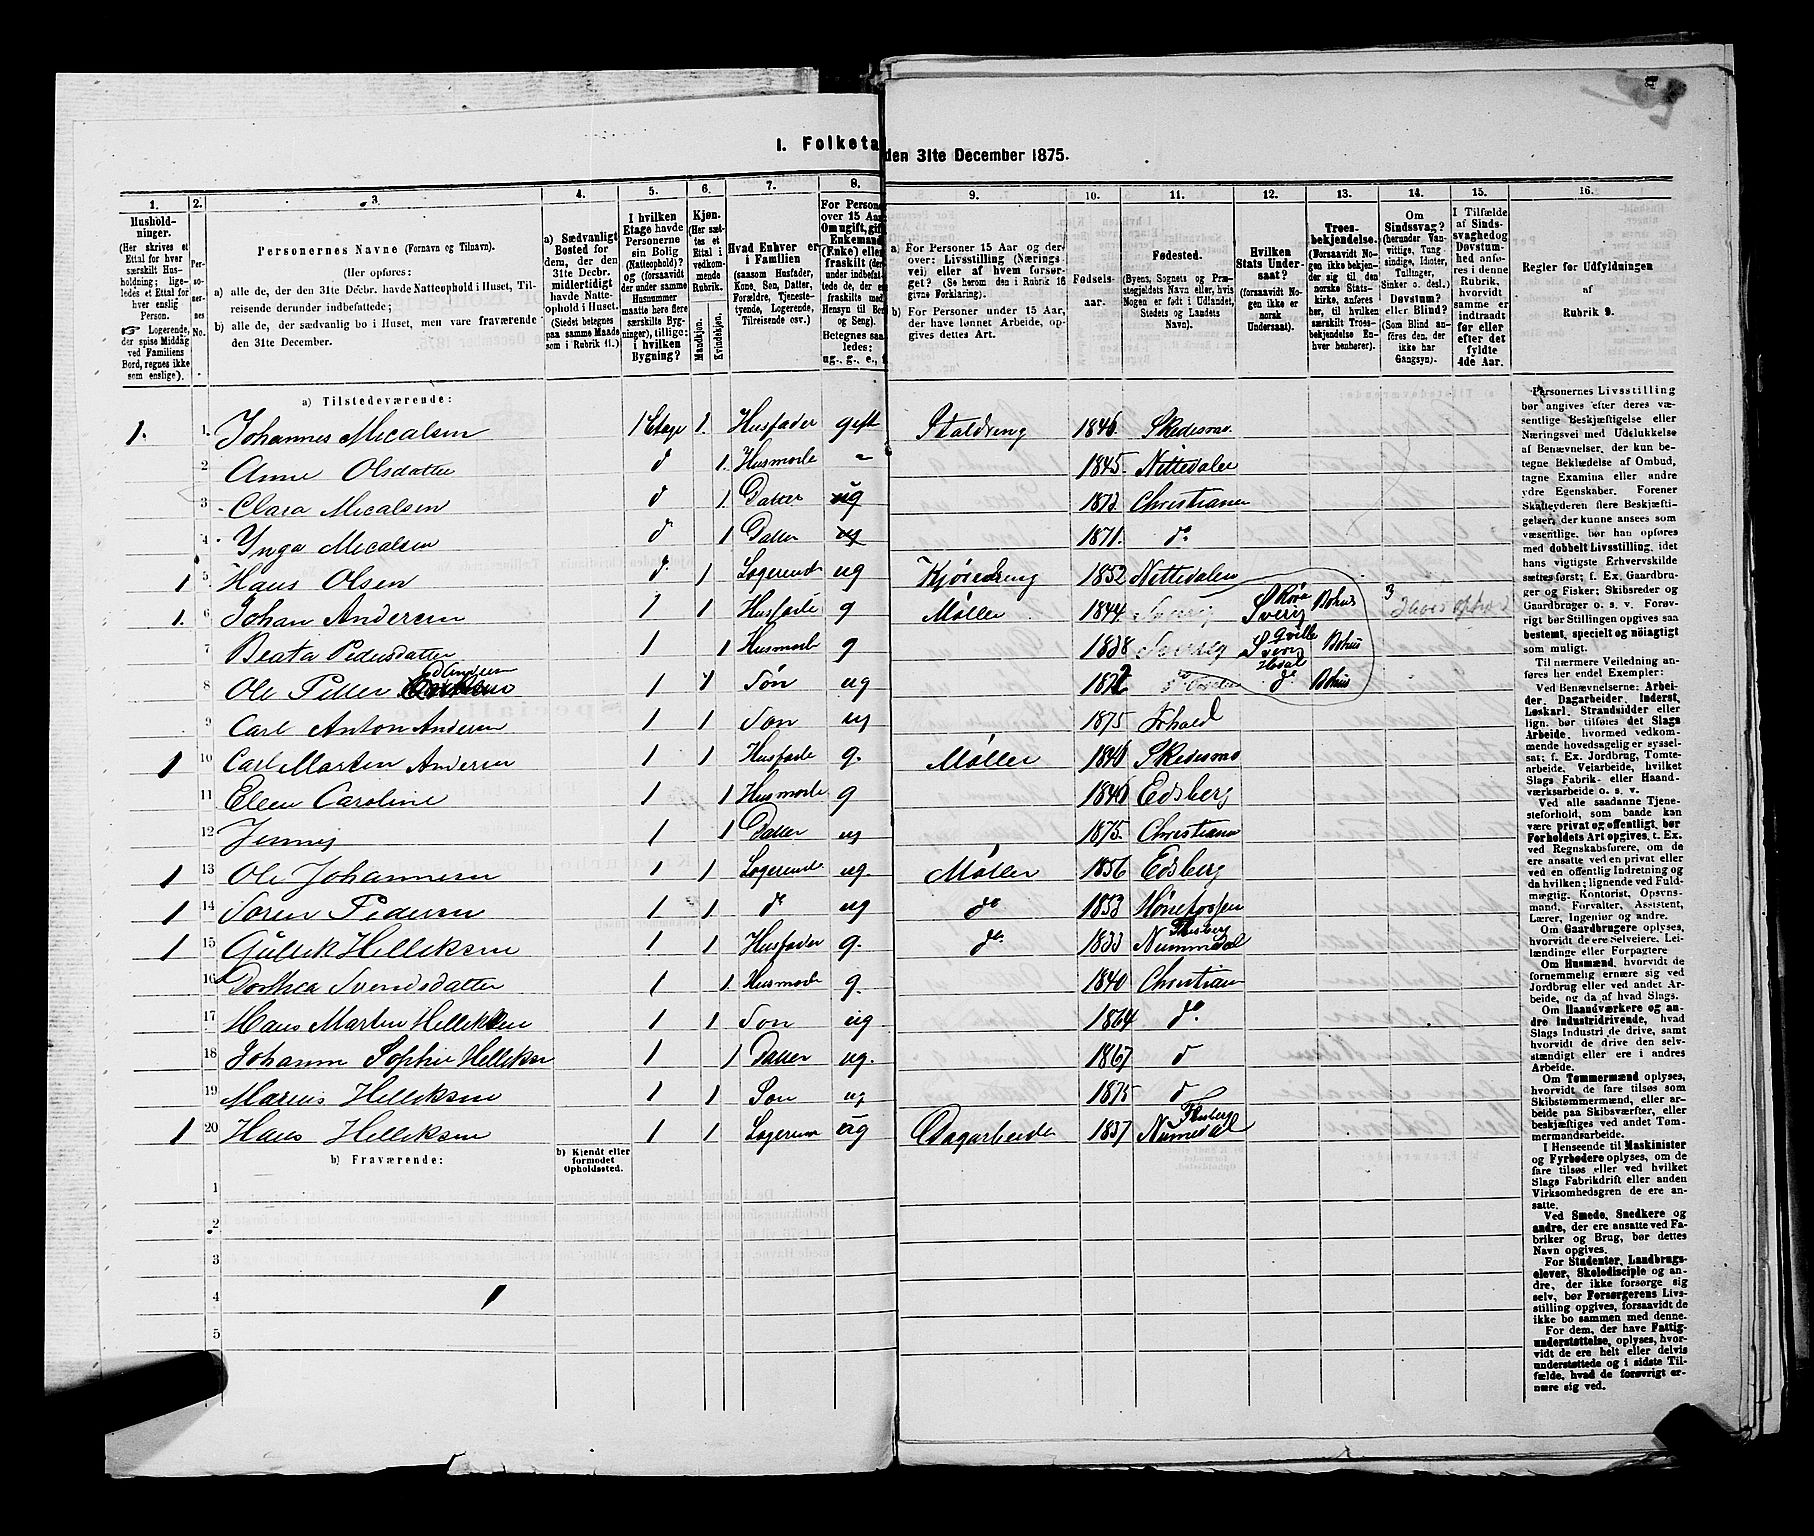 1. Folketa
den 31te December 1875.
1. 2. 3. 4. 5. 6. 7. 8. 9. 10. 11. 12. 13. 14. 15. 16.
Hushold-
ninger.
(Her skrives et
Ettal for hver
særskilt Hus-
holdning; lige-
ledes et Ettal for
hver enslig
Person.
☞ Logerende,
der spise Middag
ved Familiens
Bord, regnes ikke
som enslige).
Per-
soner-
nes
No.
Personernes Navne (Fornavn og Tilnavn).
(Her opføres:
a) alle de, der den 31te Decbr. havde Natteophold i Huset, Til-
reisende derunder indbefattede;
b) alle de, der sædvanlig bo i Huset, men vare fraværende
den 31te December.
a) Sædvanligt
Bosted for
dem, der den
31te Decbr.
midlertidigt
havde Natte-
ophold i Huset.
(Stedet betegnes
paa samme Maade
som i Rubrik 11.)
I hvilken
Etage havde
Personerne
sin Bolig
(Natteophold)?
(forsaavidt
der under samme
Husnummer
maatte høre flere
særskilte Byg-
ninger), tillige:
i hvilken
Bygning?
Kjøn.
(Her sæt-
tes et
Ettal i
vedkom-
mende
Rubrik.
Mandkjøn.
Kvindekjøn.
Hvad Enhver er
i Familien
(saasom Husfader,
Kone, Søn, Datter,
Forældre, Tjeneste-
tyende, Logerende,
Tilreisende osv.)
For Persone
over 15 Aar
Om ugift, gif
Enkemand
(Enke) elle
fraskilt (der
under indbefat
tede de, der e
fraskilte med
Hensyn til Bo
og Seng).
Betegnes saa
ledes:
ug., g., e., f
a) For Personer 15 Aar og der-
over: Livsstilling (Nærings-
vei) eller af hvem forsør-
get? (Se herom den i Rubrik 16
givne Forklaring).
b) For Personer under 15 Aar,
der have lønnet Arbeide, op-
gives dettes Art.
Fødsels-
aar.
Fødested.
(Byens, Sognets og Præ-
stegjeldets Navn eller, hvis
Nogen er født i Udlandet,
Stedets og Landets
Navn).
Hvilken
Stats Under-
saat?
(forsaavidt No-
gen ikke er
norsk
Undersaat).
Troes-
bekjendelse.
(Forsaavidt No-
gen ikke bekjen-
der sig til den
norske Stats-
kirke, anføres
her, til hvilken
særskilt Troes-
bekjendelse En-
hver henhører).
Om
Sindssvag?
(herunder Van-
vittige, Tung-
sindige, Idioter,
Tullinger,
Sinker o. desl.)
Døvstum?
eller Blind?
(Som Blind an-
føres den, der
ikke har
Gangsyn).
I Tilfælde
af Sinds-
svaghed og
Døvstum-
hed anfø-
res i denne
Rubrik,
hvorvidt
samme er
indtraadt
før eller
efter det
fyldte
4de Aar.
Regler for Udfyldningen
af
Rubrik 9.
a) Tilstedeværende:
1. 1. Johannes Micalsen 1 Etage 1. Husfader gift Staldreng 1846 Skedesmo.
2 Anne Olsdatter d 1. Husmode 1845. Nittedalen
3 Clara Micalsen d 1. Datter ug 1873. Christiania
4 Ynga Micalsen d 1 Datter ug 1871. do
1 5 Hans Olsen d 1 Logerende ug Kjøredreng 1852 Nittedalen
1. 6 Johan Andersen 1 1 Husfade g Møller 1844 Sverig Sverig Bohus 3
7 Beata Pedersdatter 1 1 Husmode g 1838 Sverig Sverig Bohus
8 Ole Petter 1 1 Søn ug 1872 do do Bohus
9 Carl Anton Andersen 1 1 Søn ug 1875
1 10 Carl Martin Andersen 1 1 Husfade g. Møller 1846 Skedesmo
11 Elen Caroline 1 1 Husmode g 1846 Edsberg
12 Jenny 1 1 Datter ug 1875. Christiania
1 13 Ole Johannesen 1 1 Logerende ug. Møller 1856 Edsberg
1 14 Søren Pedersen 1 1 do ug do 1853 Hønefossen
1 15 Gullik Helliksen 1 1 Husfader g. do. 1833 Flesberg Nummedal
16 Dorthea Svendsdatter 1 1 Husmode g. 1840 Christiania
17 Hans Martin Helliksen 1 1 Søn ug 1864 do.
18 Johanne Sophie Helliksen 1 1 Datter ug. 1867 d
19 Marius Helliksen 1 1 Søn ug 1875 d
1 20 Hans Helliksen 1 1 Logerende ug Dagarbeide 1837 Flesberg Numedal
b) Fraværende:
b) Kjendt eller
formodet
Opholdssted.
1
2
3
4
5
Personernes Livsstilling
bør angives efter deres væ-
sentlige Beskjæftigelse eller
Næringsvei med Udelukkelse
af Benævnelser, der kun be-
tegne Beklædelse af Ombud,
tagne Examina eller andre
ydre Egenskaber. Forener
Skatteyderen flere Beskjæftig-
elser, der kunne ansees som
væsentlige, bør han opføres
med dobbelt Livsstilling, idet
hans vigtigste Erhvervskilde
sættes først; f. Ex. Gaardbru-
ger og Fisker; Skibsreder og
Gaardbruger o. s. v. Forøv-
rigt bør Stillingen opgives saa
bestemt, specielt og nøiagtigt
som muligt.
Til nærmere Veiledning an-
føres her endel Exempler:
Ved Benævnelserne: Arbei-
der, Dagarbeider, Inderst,
Løskarl, Strandsidder eller
lign. bør tilføies det Slags
Arbeide, hvormed vedkom-
mende hovedsagelig er syssel-
sat; f. Ex. Jordbrug, Tomte-
arbeide, Veiarbeide, hvilket
Slags Fabrik- eller Haand-
værksarbeide o. s. v.
Ved alle saadanne Tjene-
steforhold, som baade kan
være privat og offentligt, bør
Forholdets Art opgives, t. Ex.
ved Regnskabsførere, om de
ere ansatte ved en privat eller
ved en offentlig Indretning og
da hvilken; lignende ved Fuld-
mægtig, Kontorist, Opsyns-
mand, Forvalter, Assistent,
Lærer, Ingeniør og andre.
Om Gaardbrugere oplyses,
hvorvidt de ere Selveiere, Lei-
lændinge eller Forpagtere
Om Husmænd, hvorvidt de
fornemmelig ernære sig ved
Jordbrug eller ved andet Ar-
beide, og da af hvad Slags.
Om Haandværkere og an-
dre Industridrivende, hvad
Slags Industri de drive, samt
hvorvidt de drive den selv-
stændigt eller ere i andres
Arbeide.
Om Tømmermænd oplyses,
hvorvidt de fare tilsøs som
Skibstømmermænd, eller ar-
beide paa Skibsværfter, eller
beskjæftiges ved andet Tøm-
mermandsarbeide.
I Henseende til Maskinister
og Fyrbødere oplyses, om de
fare tilsøs eller ved hvilket
Slags Fabrikdrift eller anden
Virksomhedsgren de ere an-
satte.
Ved Smede, Snedkere og
andre, der ere ansatte ved Fa-
briker og Brug, bør dettes
Navn opgives.
For Studenter, Landbrugs-
elever, Skoledisciple og an-
dre, der ikke forsørge sig
selv, bør Forsørgerens Livs-
stilling opgives, forsaavidt de
ikke bo sammen med denne.
For dem, der have Fattig-
understøttelse, oplyses, hvor-
vidt de ere helt eller delvis
understøttede og i sidste Til-
fælde, hvad de forøvrigt er-
nære sig ved.